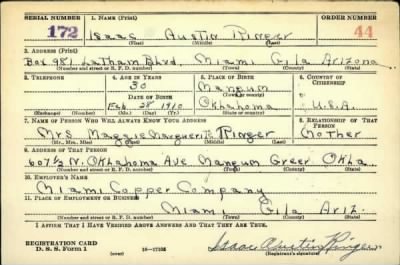 SERIAL NUMBER 1. NAME (Print) ORDER NUMBER
172 Isaac Austin Ringer 44
(First) (Middle) (Last)
3. ADDRESS (Print)
Box 981 Latham Blvd. Miami Gila Arizona
(Number and street or R. F. D. number) (Town) (County) (State)
3. TELEPHONE 4. AGE IN YEARS 5. PLACE OF BIRTH 6. COUNTRY OF CITIZENSHIP
30 Mangum
DATE OF BIRTH (Town or county)
Feb 28 1910 Oklahoma U.S.A.
(Exchange) (Number) (Mo.) (Day) (Yr.) (State or country)
7. NAME OF PERSON WHO WILL ALWAYS KNOW YOUR ADDRESS 8. RELATIONSHIP OF THAT PERSON
Mrs Maggie Marguerite Ringer Mother
(Mr., Mrs., Miss) (First) (Middle) (Last)
9. ADDRESS OF THAT PERSON
607½ N. Oklahoma Ave Mangum Greer Okla.
(Number and street or R. F. D. number) (Town) (County) (State)
10. EMPLOYER'S NAME
Miami Copper Company
11. PLACE OF EMPLOYMENT OR BUSINESS
Miami Gila Ariz.
(Number and street or R. F. D. number) (Town) (County) (State)
I AFFIRM THAT I HAVE VERIFIED ABOVE ANSWERS AND THAT THEY ARE TRUE.
REGISTRATION CARD
D. S. S. Form 1 16-17105 Isaac Austin Ringer
(Registrant's signature)